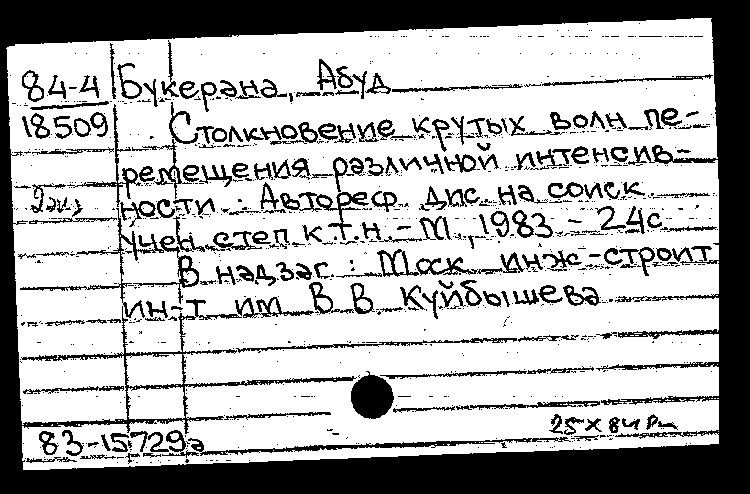 84-4 Букерана, Абуд
18509 Столкновение крутых волн пе-
ремещения различной интенсив-
2 экз ности : Автореф дис на соиск
учен степ к т.н. - М, 1983 - 24с
В надзаг : Моск инж-строит
ин-т им В В Куйбышева
83-15729а
25 X 84